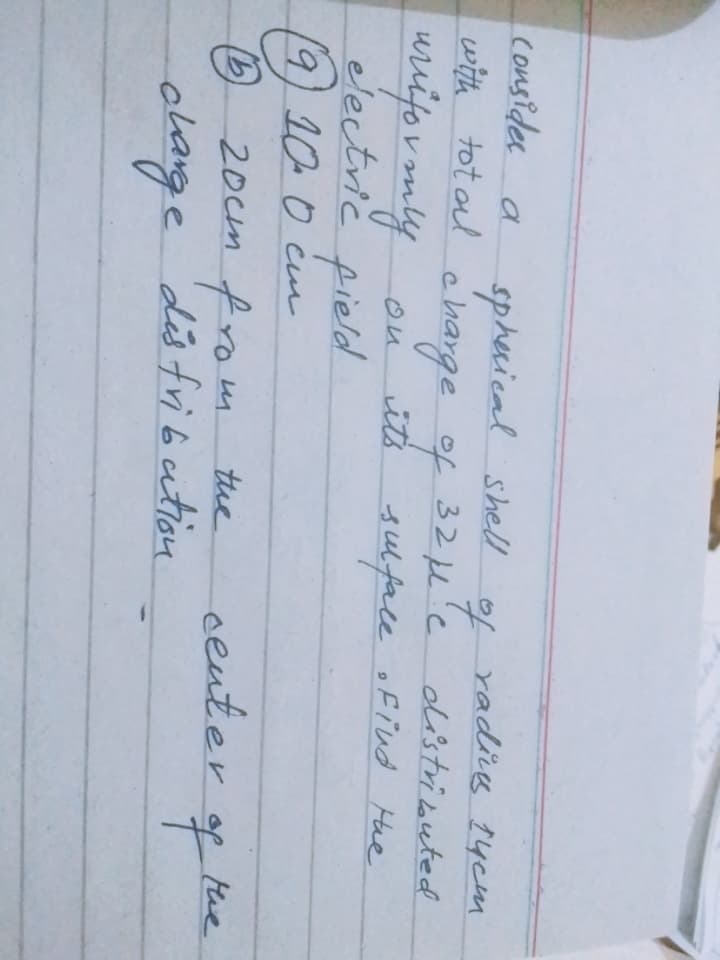 consider a spherical shell of radius 14cm
with total charge of 32 μC distributed
uniformly on its surface. Find the
electric field
(a) 10.0 cm
(b) 20cm from the center of the
charge distribution